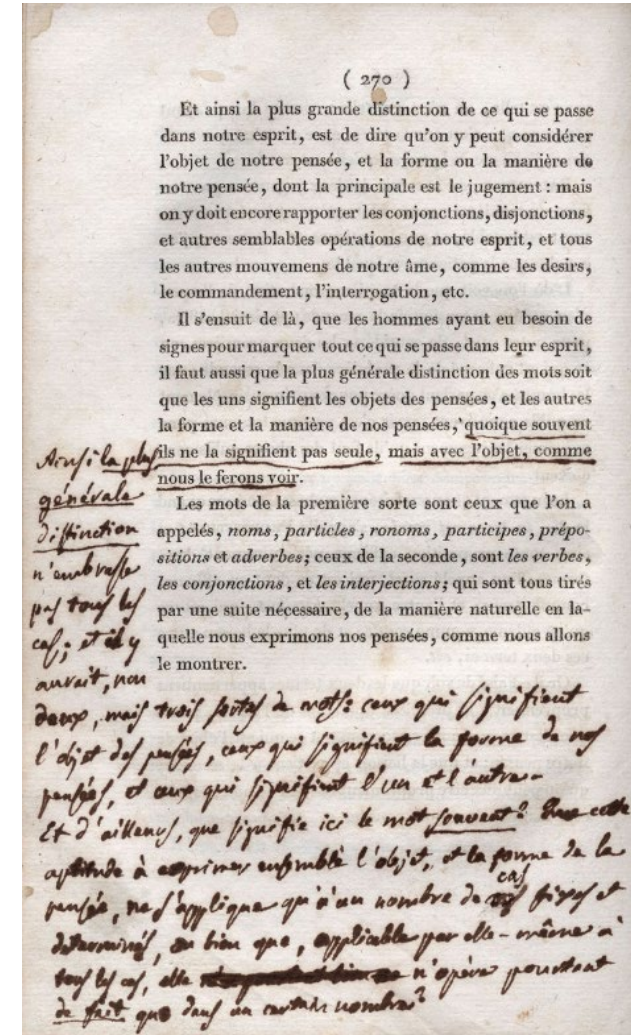 ( 270 )
Et ainsi la plus grande distinction de ce qui se passe
dans notre esprit, est de dire qu'on y peut considérer
l'objet de notre pensée, et la forme ou la manière de
notre pensée, dont la principale est le jugement : mais
on y doit encore rapporter les conjonctions, disjonctions,
et autres semblables opérations de notre esprit, et tous
les autres mouvemens de notre âme, comme les desirs,
le commandement, l'interrogation, etc.
Il s'ensuit de là, que les hommes ayant eu besoin de
signes pour marquer tout ce qui se passe dans leur esprit,
il faut aussi que la plus générale distinction des mots soit
que les uns signifient les objets des pensées, et les autres
la forme et la manière de nos pensées, quoique souvent
ils ne la signifient pas seule, mais avec l'objet, comme
nous le ferons voir.
Les mots de la première sorte sont ceux que l'on a
appelés, noms, particles, ronoms, participes, prépo-
sitions et adverbes; ceux de la seconde, sont les verbes,
les conjonctions, et les interjections; qui sont tous tirés
par une suite nécessaire, de la manière naturelle en la-
quelle nous exprimons nos pensées, comme nous allons
le montrer.
Ainsi la plus
générale
distinction
n'embrasse
pas tous les
cas; et il y
aurait, non
deux, mais trois sortes de mots: ceux qui signifient
l'objet des pensées, ceux qui signifient la forme de nos
pensées, et ceux qui signifient l'un et l'autre.
Et d'ailleurs, que signifie ici le mot souvent? Que cette
aptitude à exprimer ensemble l'objet, et la forme de la
pensée, ne s'applique qu'à un nombre de cas fixes et
déterminés, ou bien que, applicable par elle-même à
tous les cas, elle n'opère pourtant
de fait que dans un certain nombre?